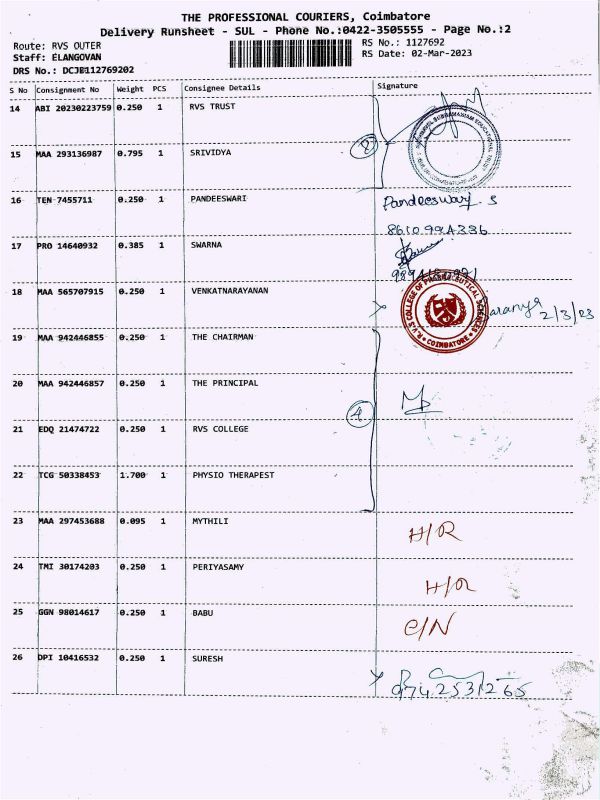 THE PROFESSIONAL COURIERS, Coimbatore
Delivery Runsheet - SUL - Phone No.:0422-3505555 - Page No.:2
Route: RVS OUTER
Staff: ELANGOVAN
DRS No.: DCJB112769202
RS No.: 1127692
RS Date: 02-Mar-2023
S No Consignment No Weight PCS Consignee Details Signature
14 ABI 20230223759 0.250 1 RVS TRUST
15 MAA 293136987 0.795 1 SRIVIDYA
16 TEN 7455711 0.250 1 PANDEESWARI Pandeeswary. S
17 PRO 14640932 0.385 1 SWARNA
18 MAA 565707915 0.250 1 VENKATNARAYANAN
R.V.S. COLLEGE OF PHARMACEUTICAL SCIENCES
COIMBATORE
2/3/23
19 MAA 942446855 0.250 1 THE CHAIRMAN
20 MAA 942446857 0.250 1 THE PRINCIPAL
4
21 EDQ 21474722 0.250 1 RVS COLLEGE
22 TCG 50338453 1.700 1 PHYSIO THERAPEST
23 MAA 297453688 0.095 1 MYTHILI H/R
24 TMI 30174203 0.250 1 PERIYASAMY H/R
25 GGN 98014617 0.250 1 BABU C/N
26 DPI 10416532 0.250 1 SURESH
9742531265